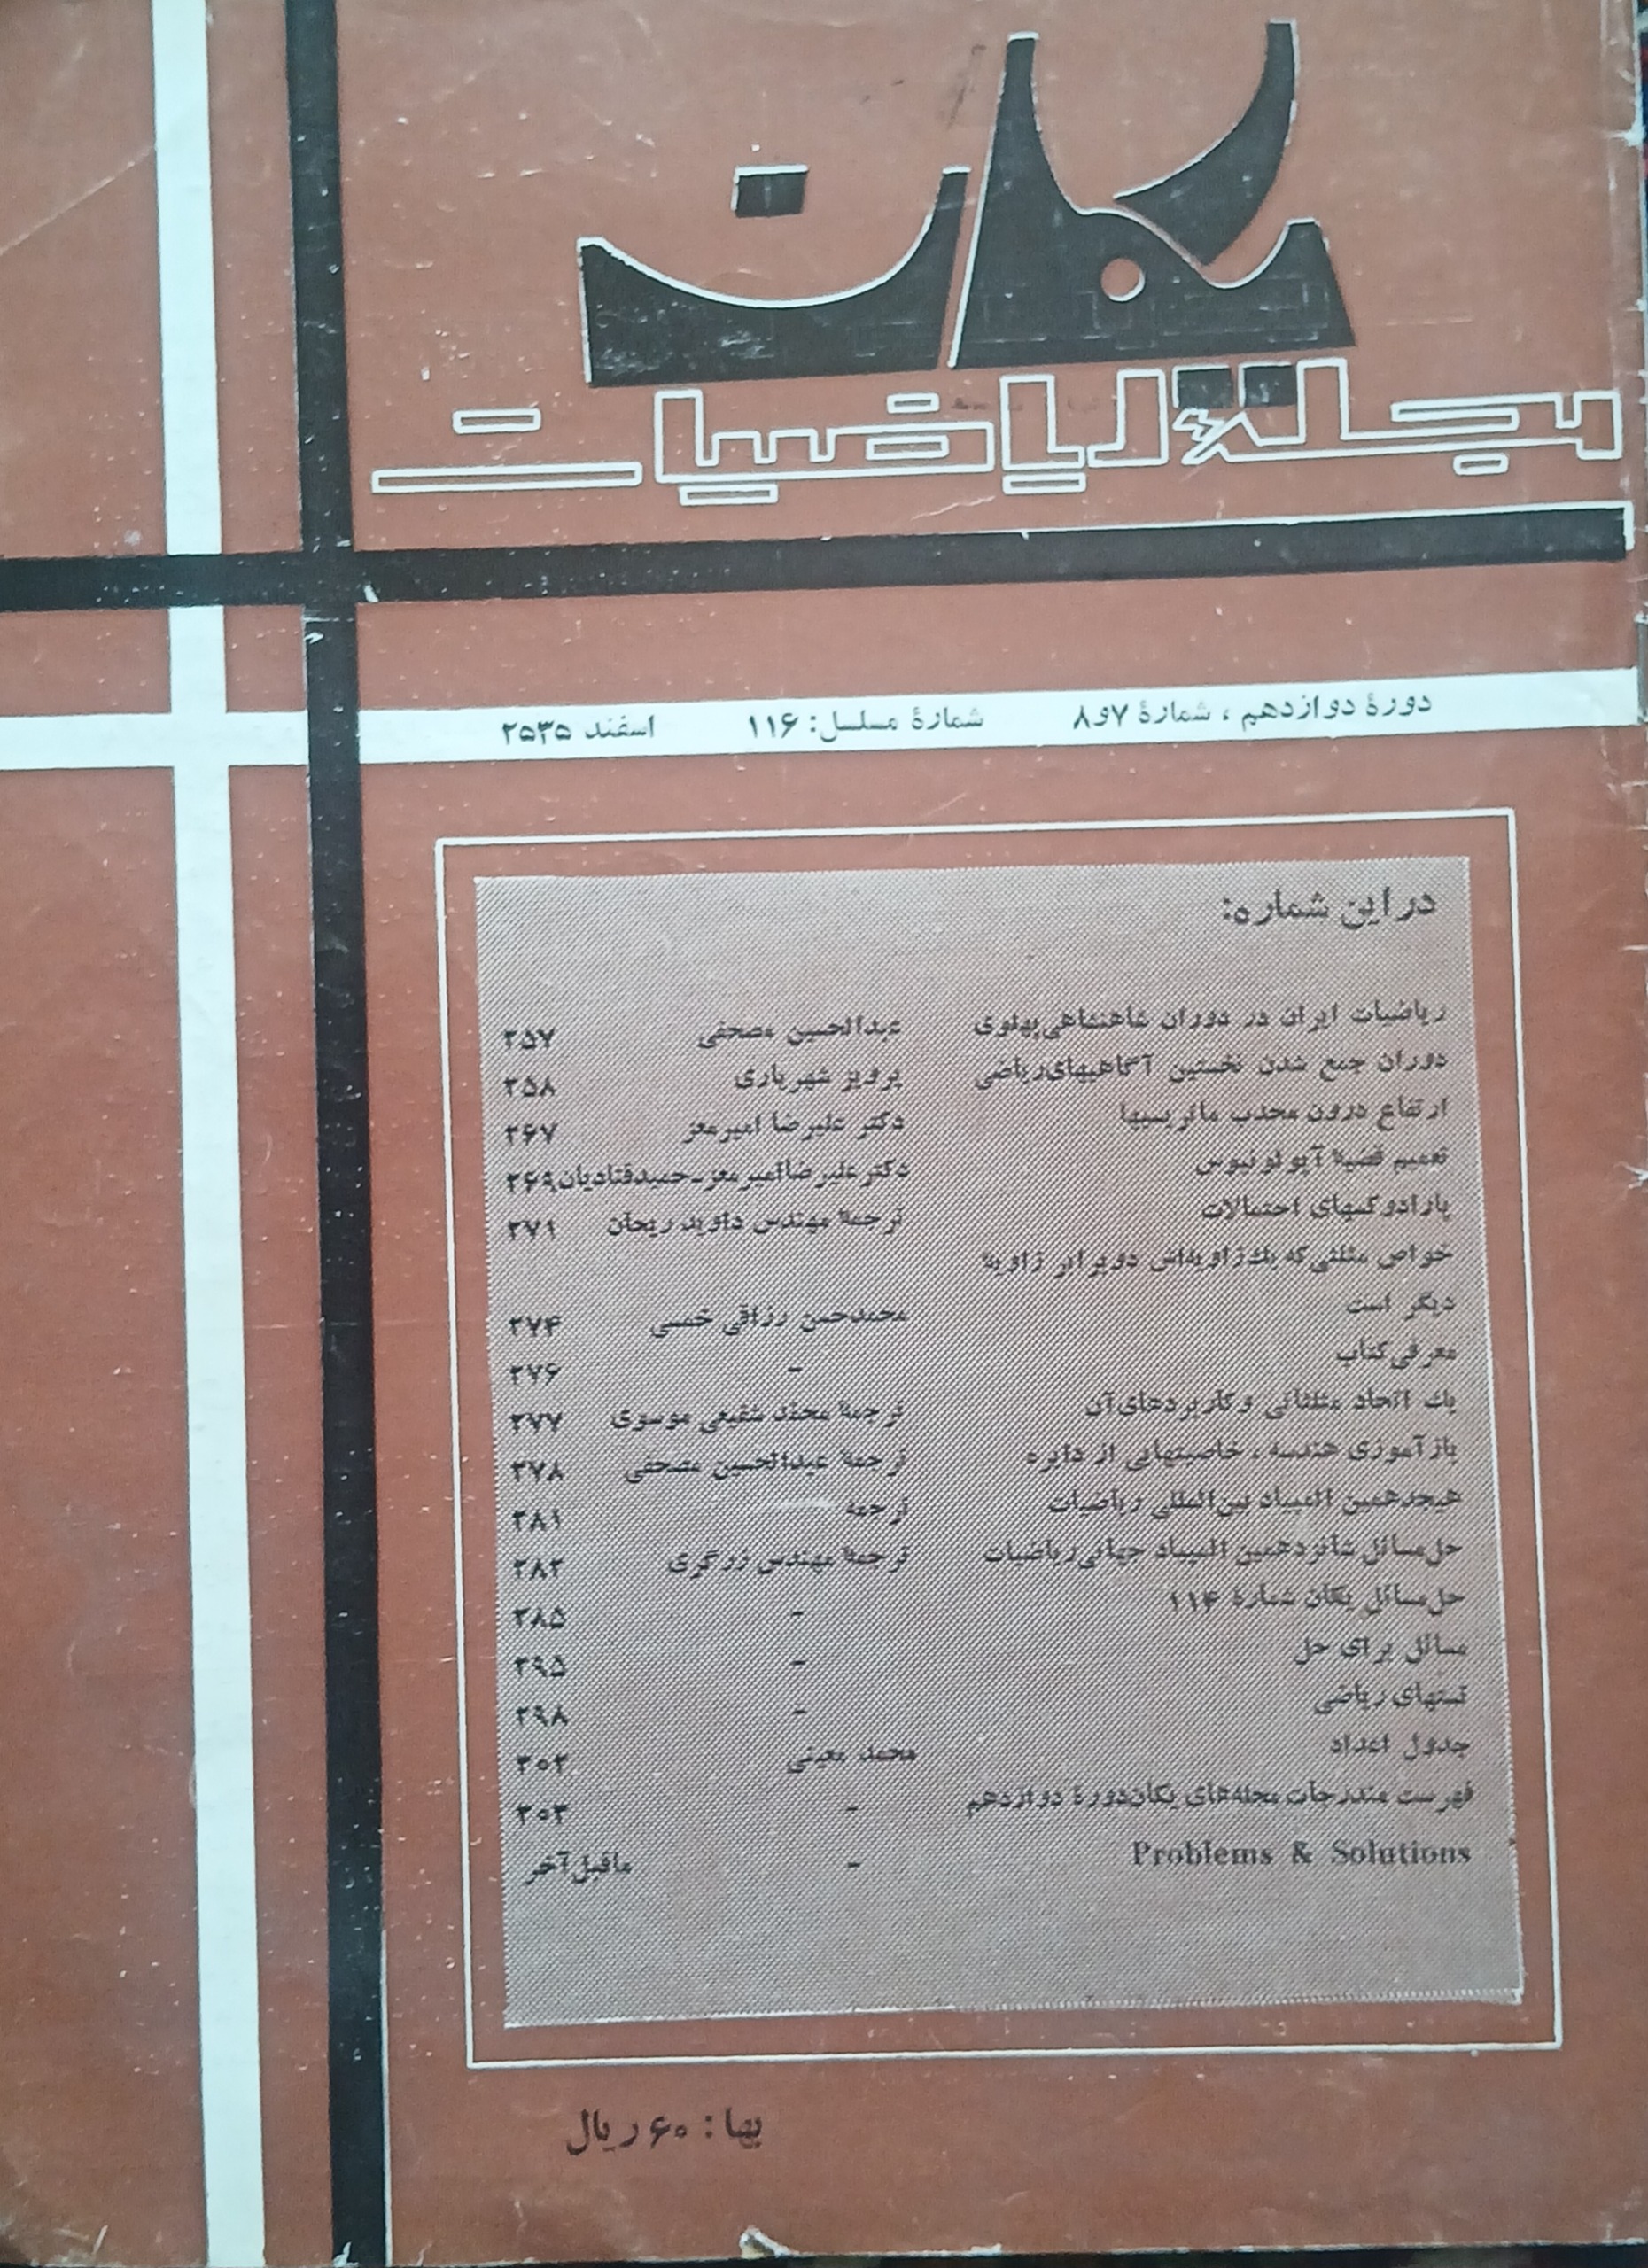 یکان
مجلهٔ ریاضیات
دورهٔ دوازدهم ، شمارهٔ ۷و۸ شمارهٔ مسلسل: ۱۱۶ اسفند ۲۵۳۵
در این شماره:
ریاضیات ایران در دوران شاهنشاهی پهلوی عبدالحسین مصحفی ۲۵۷
دوران جمع شدن نخستین آگاهیهای ریاضی پرویز شهریاری ۲۵۸
ارتفاع درون محدب ماتریسیها دکتر علیرضا امیرمعز ۲۶۷
تعمیم قضیهٔ آپولونیوس دکتر علیرضا امیرمعز ـ حمید قنادیان ۲۶۹
پارادوکسهای احتمالات ترجمهٔ مهندس داوید ریحان ۲۷۱
خواص مثلثی که یك زاویه‌اش دو برابر زاویهٔ
دیگر است محمدحسن رزاقی خمسی ۲۷۴
معرفی کتاب - ۲۷۶
یك اتحاد مثلثاتی و کاربردهای آن ترجمهٔ محمد شفیعی موسوی ۲۷۷
بازآموزی هندسه ، خاصیتهایی از دایره ترجمهٔ عبدالحسین مصحفی ۲۷۸
هیجدهمین المپیاد بین‌المللی ریاضیات ترجمه ۲۸۱
حل مسائل شانزدهمین المپیاد جهانی ریاضیات ترجمهٔ مهندس زرگری ۲۸۲
حل مسائل یکان شمارهٔ ۱۱۴ - ۲۸۵
مسائل برای حل - ۲۹۵
تستهای ریاضی - ۲۹۸
جدول اعداد محمد معینی ۳۰۲
فهرست مندرجات مجله‌های یکان دورهٔ دوازدهم - ۳۰۳
Problems & Solutions - ماقبل آخر
بها : ۶۰ ریال